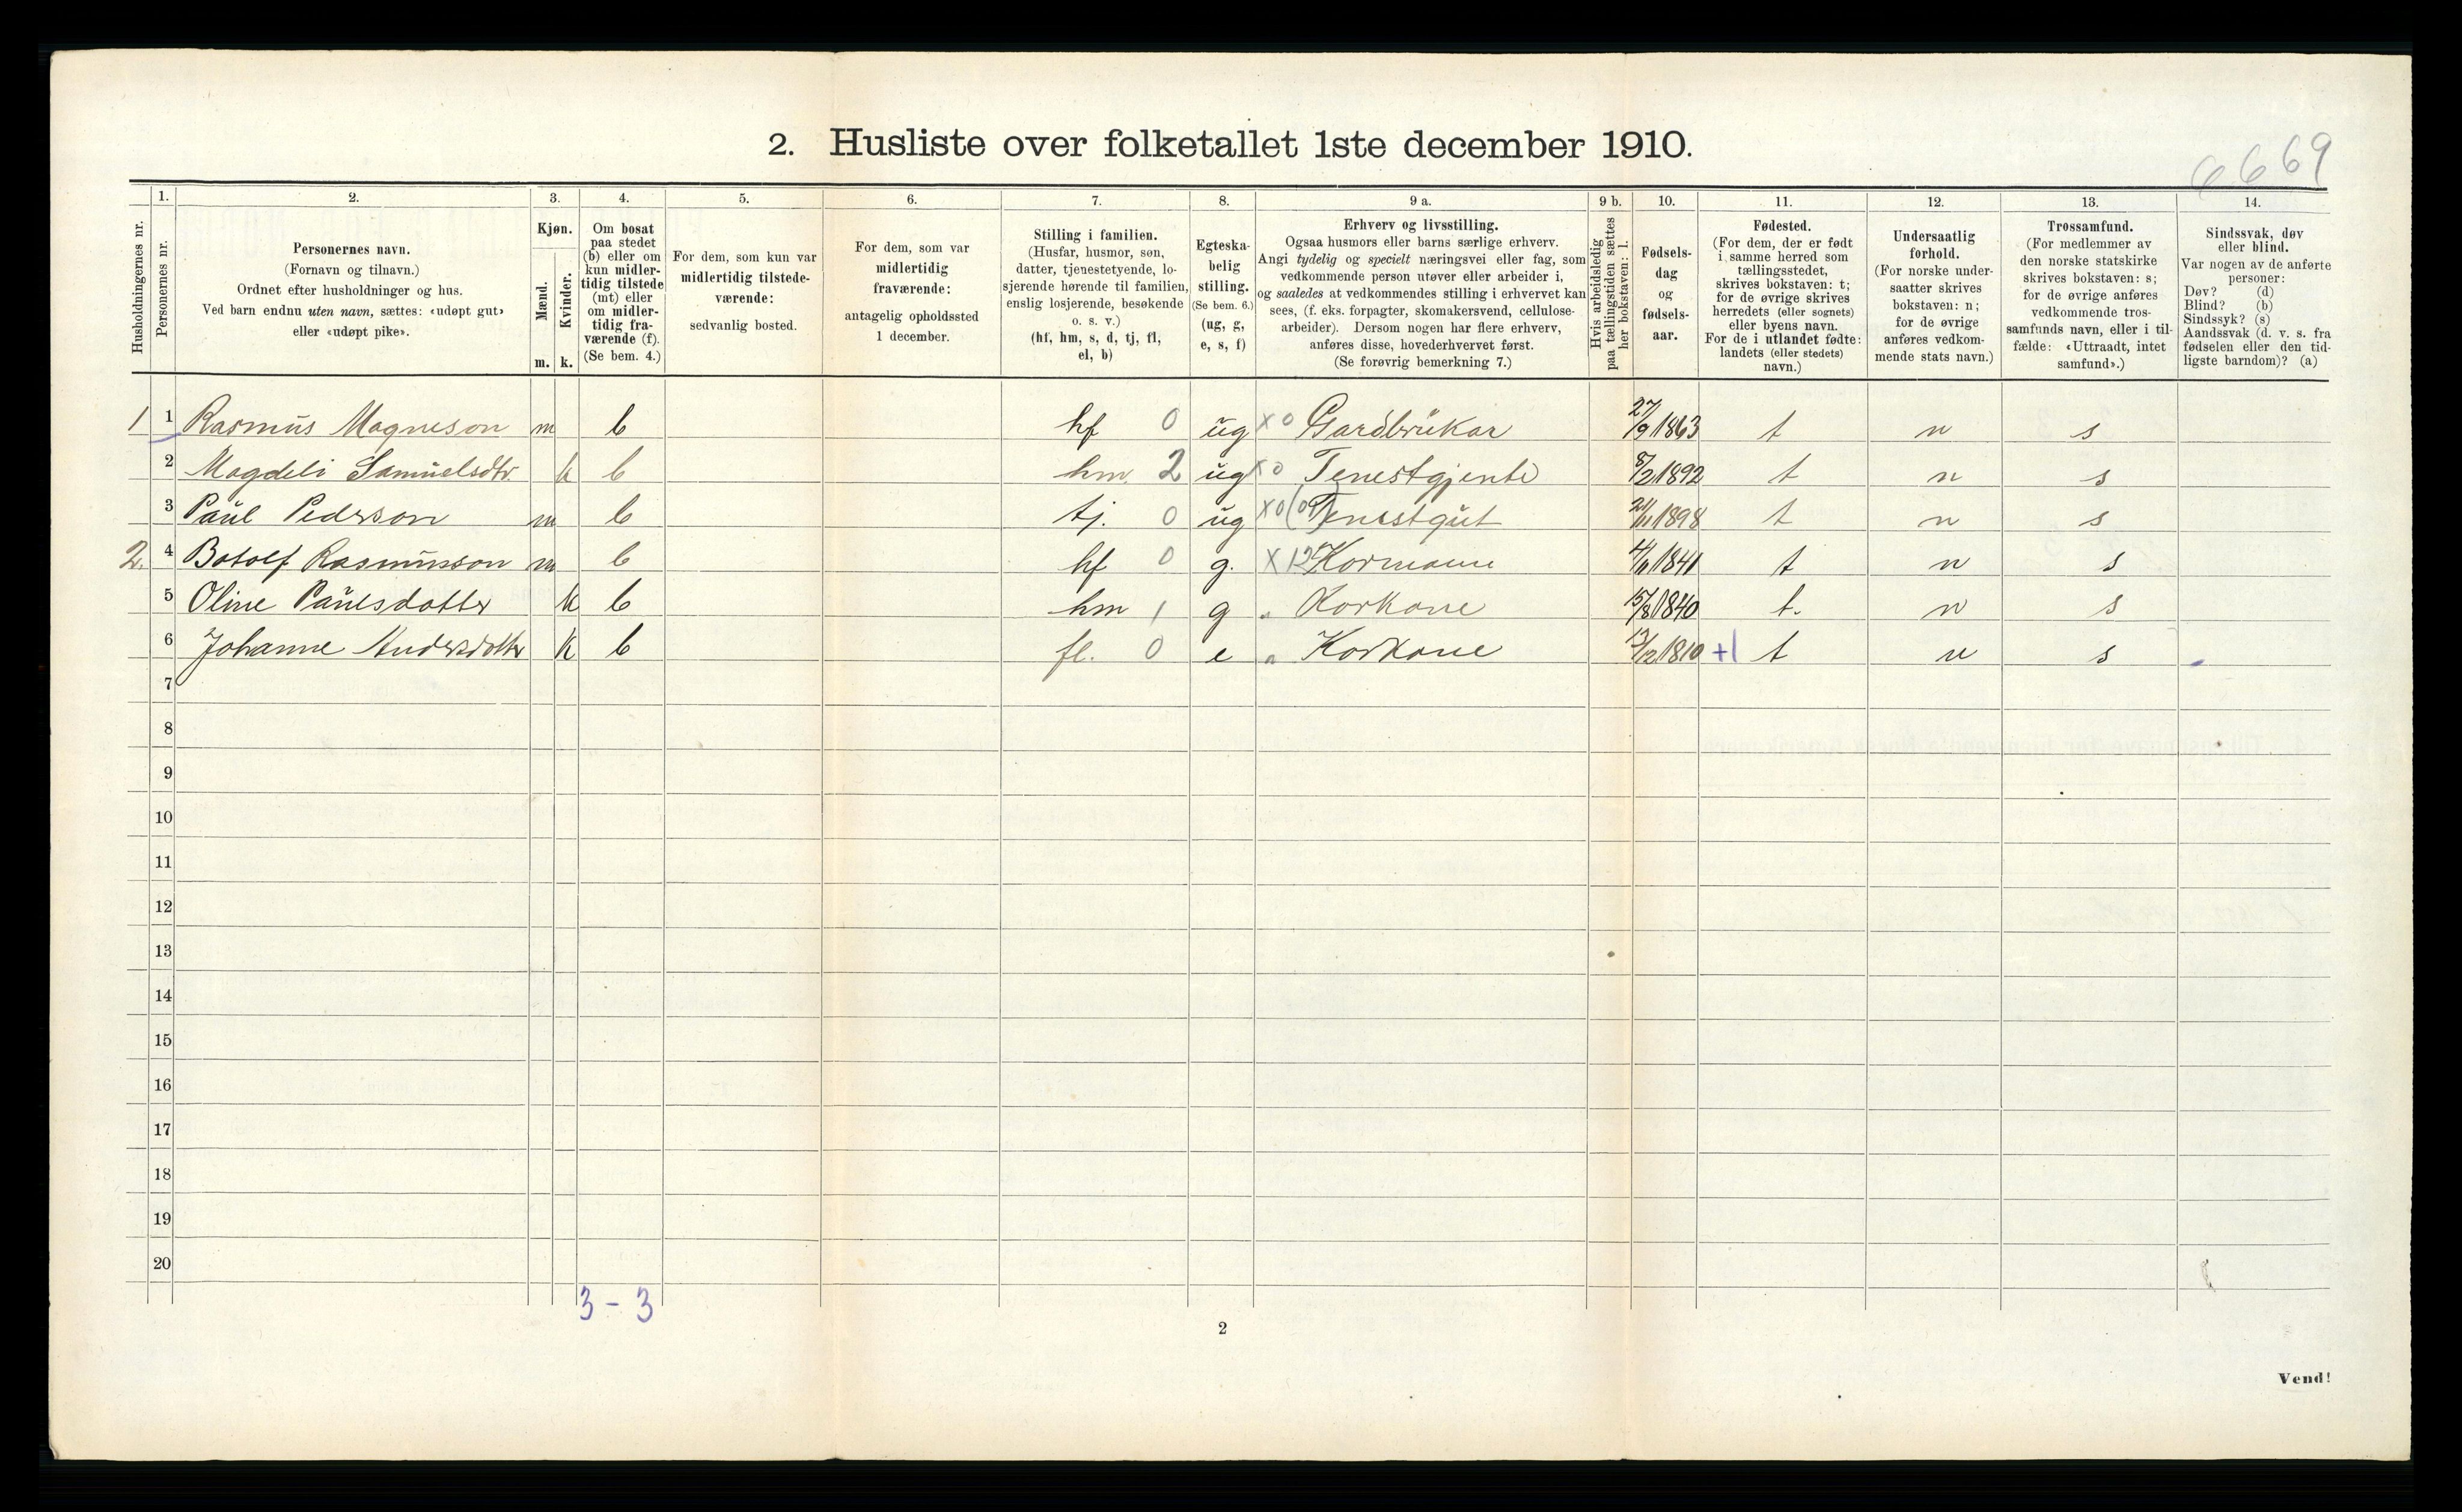 2. Husliste over folketallet 1ste december 1910.
6669
Husholdningernes nr.
1.
Personernes nr.
2.
Personernes navn.
(Fornavn og tilnavn.)
Ordnet efter husholdninger og hus.
Ved barn endnu uten navn, sættes: «udøpt gut»
eller «udøpt pike».
3.
Kjøn.
Mænd.
m.
Kvinder.
k.
4.
Om bosat
paa stedet
(b) eller om
kun midler-
tidig tilstede
(mt) eller
om midler-
tidig fra-
værende (f).
(Se bem. 4.)
5.
For dem, som kun var
midlertidig tilstede-
værende:
sedvanlig bosted.
6.
For dem, som var
midlertidig
fraværende:
antagelig opholdssted
1 december.
7.
Stilling i familien.
(Husfar, husmor, søn,
datter, tjenestetyende, lo-
sjerende hørende til familien,
enslig losjerende, besøkende
o. s. v.)
(hf, hm, s, d, tj, fl,
el, b)
8.
Egteska-
belig
stilling.
(Se bem. 6.)
(ug, g,
e, s, f)
9 a.
Erhverv og livsstilling.
Ogsaa husmors eller barns særlige erhverv.
Angi tydelig og specielt næringsvei eller fag, som
vedkommende person utøver eller arbeider i,
og saaledes at vedkommendes stilling i erhvervet kan
sees, (f. eks. forpagter, skomakersvend, cellulose-
arbeider). Dersom nogen har flere erhverv,
anføres disse, hovederhvervet først.
(Se forøvrig bemerkning 7.)
9 b.
Hvis arbeidsledig
paa tællingstiden sættes
her bokstaven: l.
10.
Fødsels-
dag
og
fødsels-
aar.
11.
Fødested.
(For dem, der er født
i samme herred som
tællingsstedet,
skrives bokstaven: t;
for de øvrige skrives
herredets (eller sognets)
eller byens navn.
For de i utlandet fødte:
landets (eller stedets)
navn.)
12.
Undersaatlig
forhold.
(For norske under-
saatter skrives
bokstaven: n;
for de øvrige
anføres vedkom-
mende stats navn.)
13.
Trossamfund.
(For medlemmer av
den norske statskirke
skrives bokstaven: s;
for de øvrige anføres
vedkommende tros-
samfunds navn, eller i til-
fælde: «Uttraadt, intet
samfund».)
14.
Sindssvak, døv
eller blind.
Var nogen av de anførte
personer:
Døv? (d)
Blind? (b)
Sindssyk? (s)
Aandssvak (d. v. s. fra
fødselen eller den tid-
ligste barndom)? (a)
1 1 Rasmus Magneson m b hf 0 ug x 0 Gardbrukar 27/9 1863 t n s
2 Magdeli Samuelsdtr. k b hm. 2 ug x 0 Tenestgjente 8/2 1892 t n s
3 Paul Pederson m b tj. 0 ug x 0 Tenestgut 1898 t n s
2. 4 Botolf Rasmusson m b hf 0 g. x 12 Kormann 1841 t n s
5 Oline Paulsdotter k b hm 1 g " Korkone 15/8 1840 t. n s
6 Johanne Andersdotter k b fl. 0 e " Korkone 1810 +1 t n s
7
8
9
10
11
12
13
14
15
16
17
18
19
20
3 - 3
2
Vend!